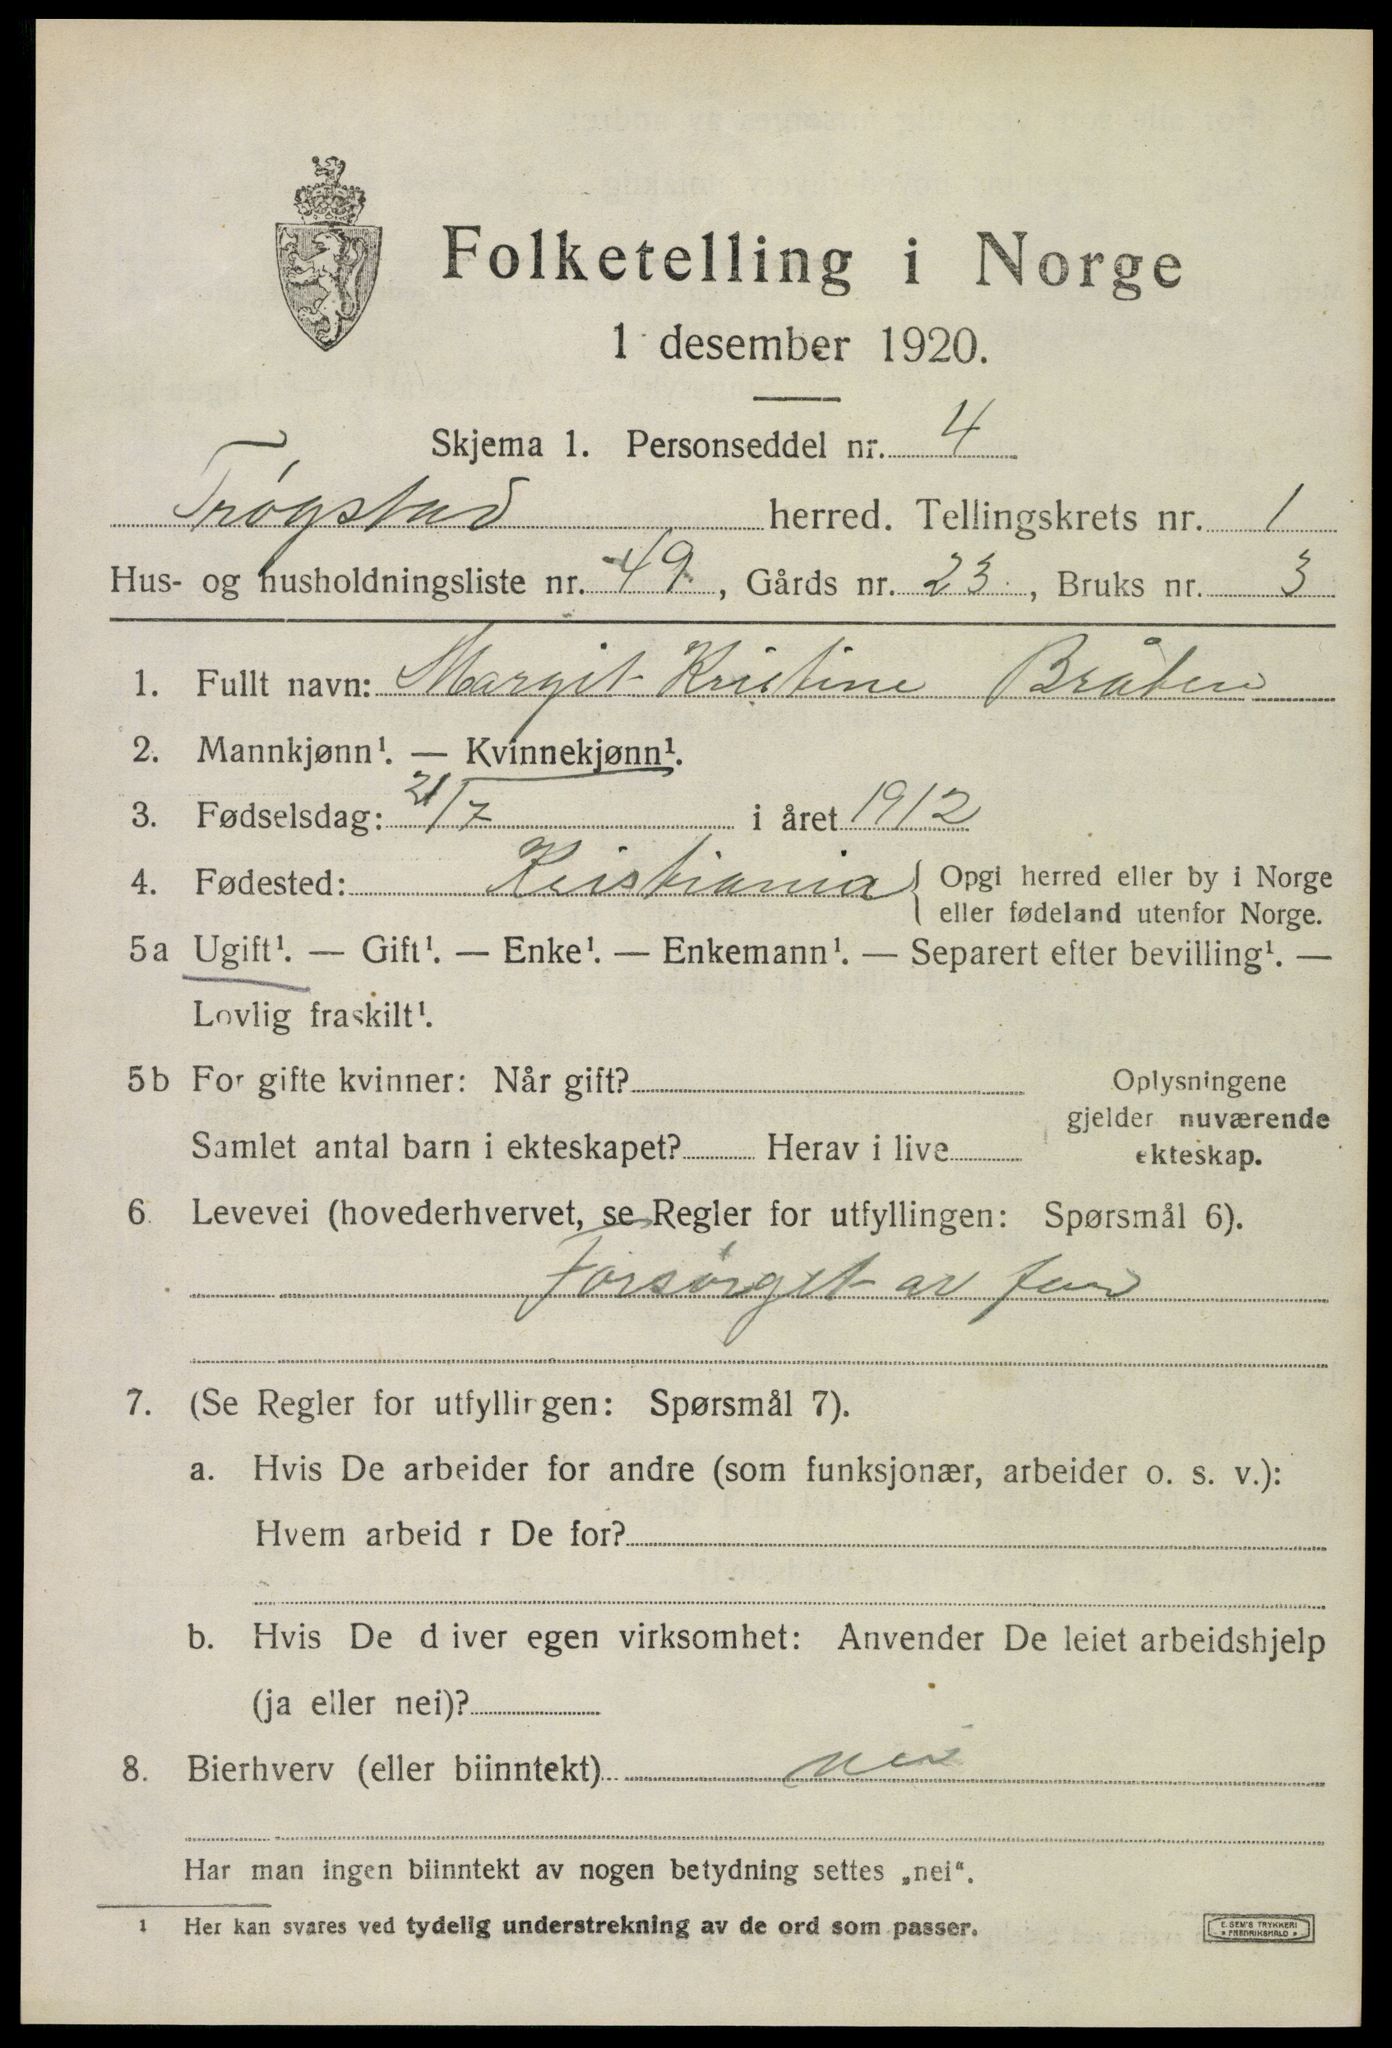 Folketelling i Norge
1 desember 1920.
Skjema 1. Personseddel nr. 4
Trøgstad herred. Tellingskrets nr. 1
Hus- og husholdningsliste nr. 49, Gårds nr. 23, Bruks nr. 3
1. Fullt navn: Margit Kristine Bråten
2. Mannkjønn¹. — Kvinnekjønn¹.
3. Fødselsdag: 21/7 i året 1912
4. Fødested: Kristiania { Opgi herred eller by i Norge
eller fødeland utenfor Norge.
5a Ugift¹. — Gift¹. — Enke¹. — Enkemann¹. — Separert efter bevilling¹. —
Lovlig fraskilt¹.
5b For gifte kvinner: Når gift?
Samlet antal barn i ekteskapet? Herav i live
Oplysningene
gjelder nuværende
ekteskap.
6. Levevei (hovederhvervet, se Regler for utfyllingen: Spørsmål 6).
Forsørget av far
7. (Se Regler for utfyllingen: Spørsmål 7).
a. Hvis De arbeider for andre (som funksjonær, arbeider o. s. v.):
Hvem arbeid r De for?
b. Hvis De d iver egen virksomhet: Anvender De leiet arbeidshjelp
(ja eller nei)?
8. Bierhverv (eller biinntekt) nei
Har man ingen biinntekt av nogen betydning settes „nei“.
¹ Her kan svares ved tydelig understrekning av de ord som passer.
E. SEM'S TRYKKERI
* FREDRIKSHALD *